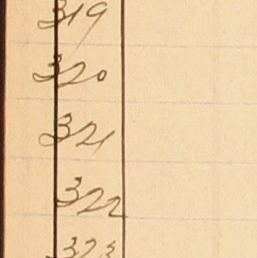 319
320
321
322
323